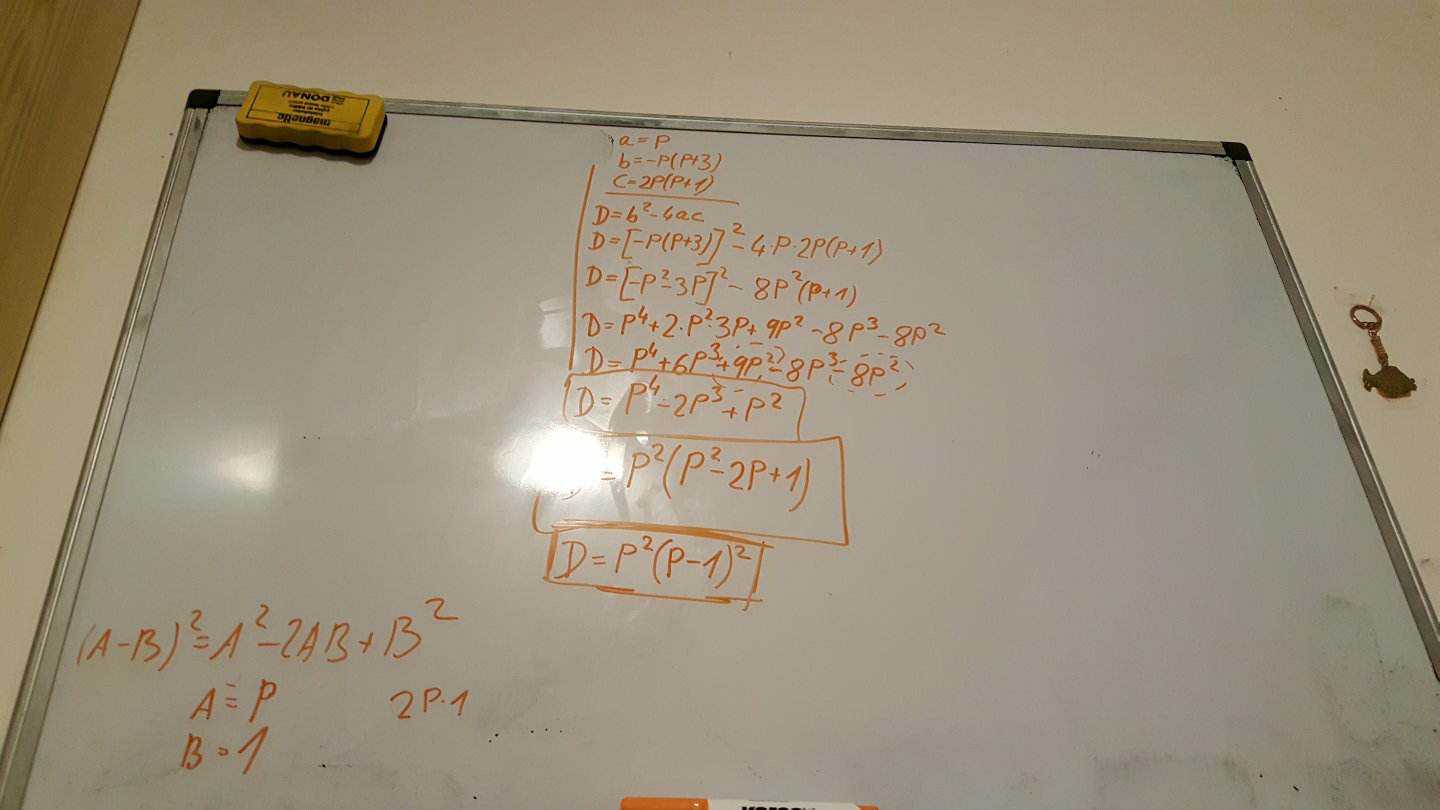 magnetic
DONAU
a=P
b=-P(P+3)
C=2P(P+1)
D=b²-4ac
D=[-P(P+3)]²-4·P·2P(P+1)
D=[-P²-3P]²-8P²(P+1)
D=P⁴+2·P²·3P+9P²-8P³-8P²
D=P⁴+6P³+9P²-8P³-8P²
D=P⁴-2P³+P²
=P²(P²-2P+1)
D=P²(P-1)²
(A-B)²=A²-2AB+B²
A=P 2P·1
B=1